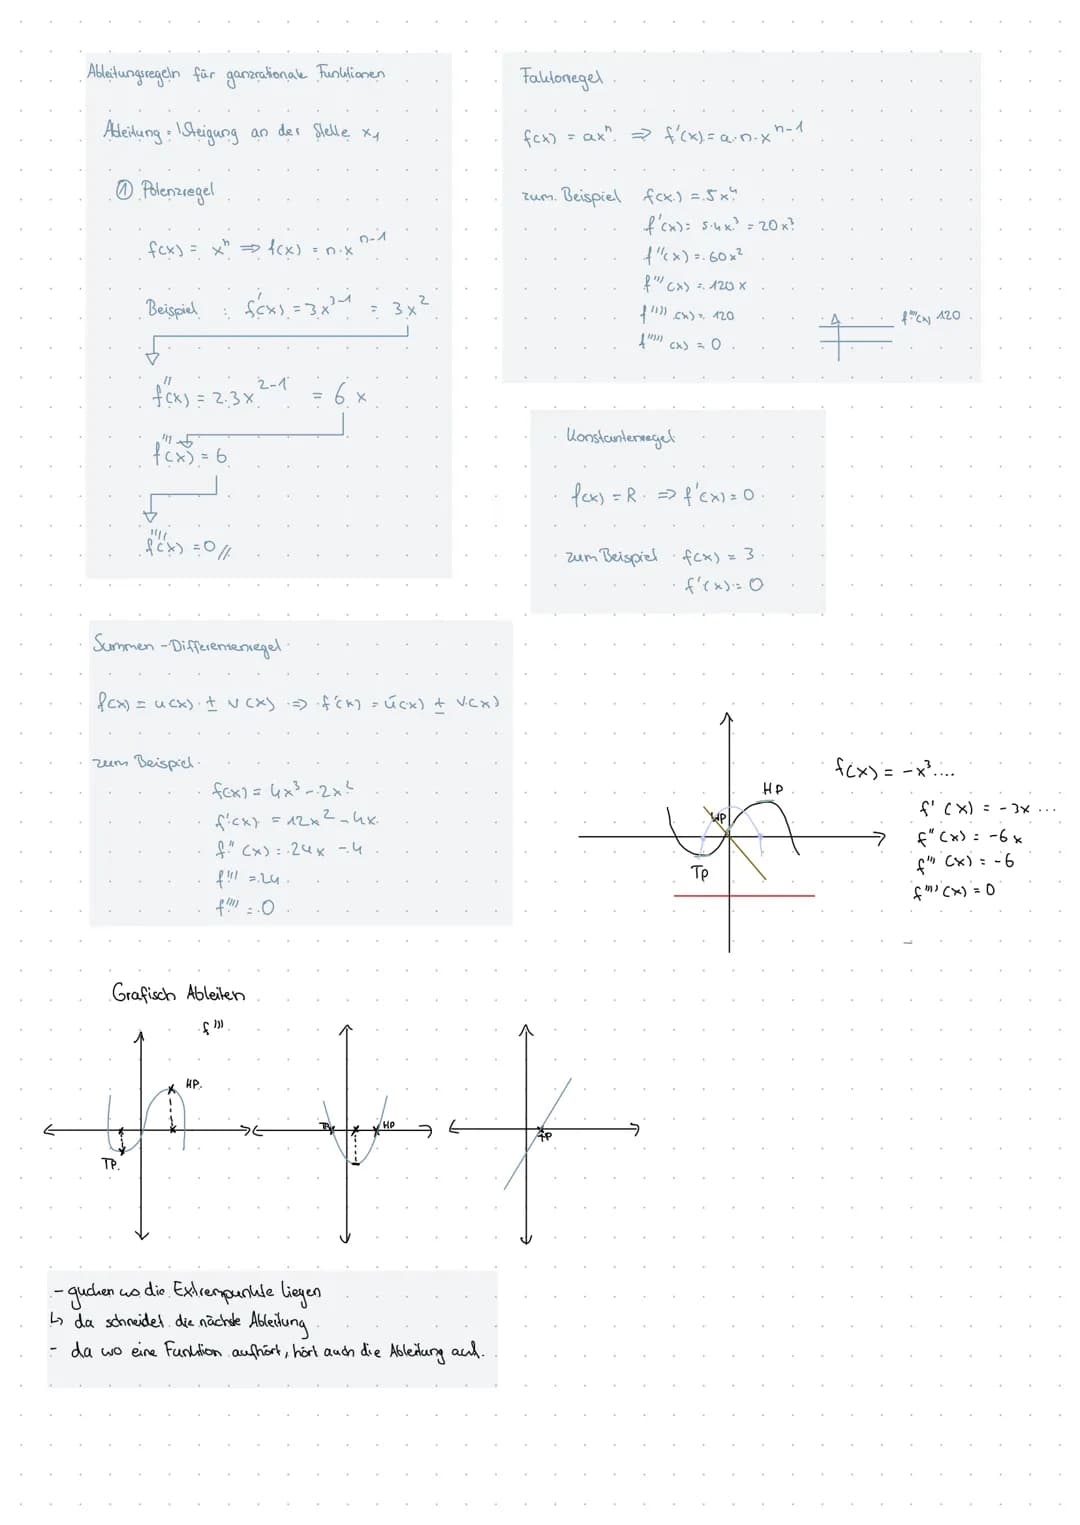 Ableitungsregeln für ganzrationale Funktionen
Ableitung = Steigung an der Stelle x₁
① Potenzregel
f(x) = xⁿ ⇒ f(x) = n·x^(n-1)
Beispiel : f'(x) = 3x^(3-1) = 3x²
f''(x) = 2·3x^(2-1) = 6x
f'''(x) = 6
f''''(x) = 0 //
Faktorregel
f(x) = axⁿ ⇒ f'(x) = a·n·x^(n-1)
zum Beispiel f(x) = 5x⁴
f'(x) = 5·4x³ = 20x³
f''(x) = 60x²
f'''(x) = 120x
f''''(x) = 120
f'''''(x) = 0
f''''(x) 120
Konstantenregel
f(x) = R ⇒ f'(x) = 0
zum Beispiel f(x) = 3
f'(x) = 0
Summen-Differenzenregel
f(x) = u(x) ± v(x) ⇒ f'(x) = u'(x) ± v(x)
zum Beispiel
f(x) = 4x³ - 2x²
f'(x) = 12x² - 4x
f''(x) = 24x - 4
f''' = 24
f'''' = 0
HP
WP
TP
f(x) = -x³....
f'(x) = -3x ...
f''(x) = -6x
f'''(x) = -6
f''''(x) = 0
Grafisch Ableiten
f'''
HP.
TP.
HP
- gucken wo die Extrempunkte liegen
↳ da schneidet die nächste Ableitung
- da wo eine Funktion aufhört, hört auch die Ableitung auf.